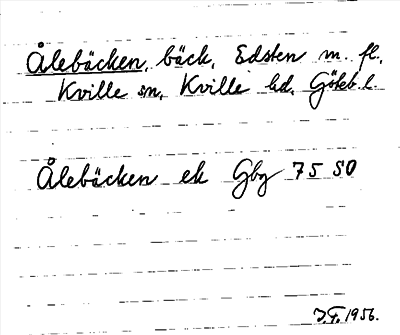 Ålebäcken, bäck, Edsten m. fl.
Kville sn, Kville hd, Göteb. l.
Ålebäcken ek Gbg 75 SO
J.F. 1956.